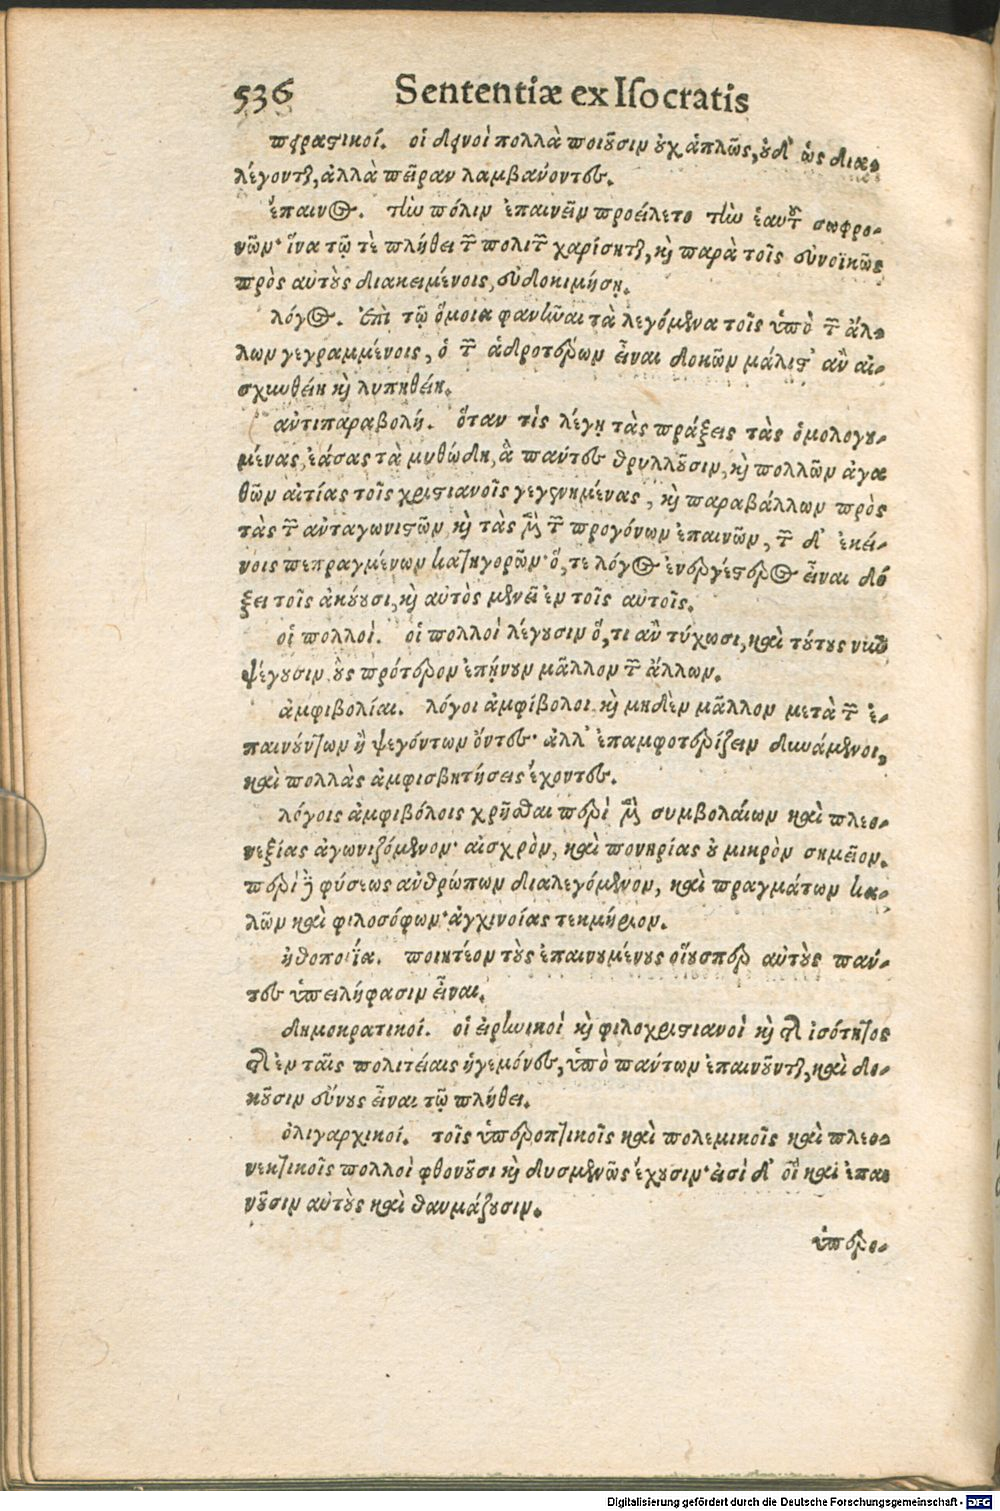 536 Sententiæ ex Isocratis
πειρατικοί. οἱ δεινοὶ πολλὰ ποιοῦσιν οὐχ ἁπλῶς, οὐδ᾽ ὡς δια-
λέγονται, ἀλλὰ πεῖραν λαμβάνοντες.
ἔπαινος. τὴν πόλιν ἐπαινεῖν προείλετο τὴν ἑαυτῶν σωφρο-
νῶν· ἵνα τῷ τὲ πλήθει τῶν πολιτῶν χαρίσηται, καὶ παρὰ τοῖς εὐνοϊκῶς
πρὸς αὐτοὺς διακειμένοις, εὐδοκιμήσῃ.
λόγος. ἐπὶ τῷ ὅμοια φανῆναι τὰ λεγόμενα τοῖς ὑπὸ τῶν ἄλ-
λων γεγραμμένοις, ὁ τῶν ἁδροτέρων εἶναι δοκῶν μάλιστ᾽ ἂν αἰ-
σχυνθείη καὶ λυπηθείη.
ἀντιπαραβολή. ὅταν τὶς λέγῃ τὰς πράξεις τὰς ὁμολογου-
μένας, ἐάσας τὰ μυθώδη, ἃ πάντες θρυλλοῦσιν, καὶ πολλῶν ἀγα
θῶν αἰτίας τοῖς χριστιανοῖς γεγενημένας, καὶ παραβάλλων πρὸς
τὰς τῶν ἀνταγωνιστῶν, καὶ τὰς μὲν τῶν προγόνων ἐπαινῶν, τῶν δ᾽ ἐκεί-
νοις πεπραγμένων κατηγορῶν· ὅ, τε λόγος ἐνεργέστερος εἶναι δό
ξει τοῖς ἀκούουσι, καὶ αὐτὸς μενεῖ ἐν τοῖς αὐτοῖς.
οἱ πολλοί. οἱ πολλοὶ λέγουσιν ὅ, τι ἂν τύχωσι, καὶ τούτους νῦν
ψέγουσιν οὓς πρότερον ἐπῄνουν μᾶλλον τῶν ἄλλων.
ἀμφιβολίαι. λόγοι ἀμφίβολοι καὶ μηδὲν μᾶλλον μετὰ τῶν ἐ-
παινούντων ἢ ψεγόντων ὄντες· ἀλλ᾽ ἐπαμφοτερίζειν δυνάμενοι,
καὶ πολλὰς ἀμφισβητήσεις ἔχοντες.
λόγοις ἀμφιβόλοις χρῆσθαι περὶ μὲν συμβολαίων καὶ πλεο-
νεξίας ἀγωνιζόμενον· αἰσχρὸν, καὶ πονηρίας οὐ μικρὸν σημεῖον.
περὶ δὲ φύσεως ἀνθρώπων διαλεγόμενον, καὶ πραγμάτων κα-
λῶν καὶ φιλοσόφων· ἀγχινοίας τεκμήριον.
ἠθοποιΐα. ποιητέον τοὺς ἐπαινουμένους οἵουσπερ αὐτοὺς πάν-
τες ὑπειλήφασιν εἶναι.
δημοκρατικοί. οἱ εἰρηνικοὶ καὶ φιλοχριστιανοὶ καὶ τῆς ἰσότητος
τῆς ἐν ταῖς πολιτείαις ἡγεμόνες, ὑπὸ πάντων ἐπαινοῦνται, καὶ δο-
κοῦσιν εὔνους εἶναι τῷ πλήθει.
ὀλιγαρχικοί. τοῖς ὑπεροπτικοῖς καὶ πολεμικοῖς καὶ πλεο-
νεκτικοῖς πολλοὶ φθονοῦσι καὶ δυσμενῶς ἔχουσιν· εἰσὶ δ᾽ οἳ καὶ ἐπαι
νοῦσιν αὐτοὺς καὶ θαυμάζουσιν.
ὑπερο-
Digitalisierung gefördert durch die Deutsche Forschungsgemeinschaft - DFG